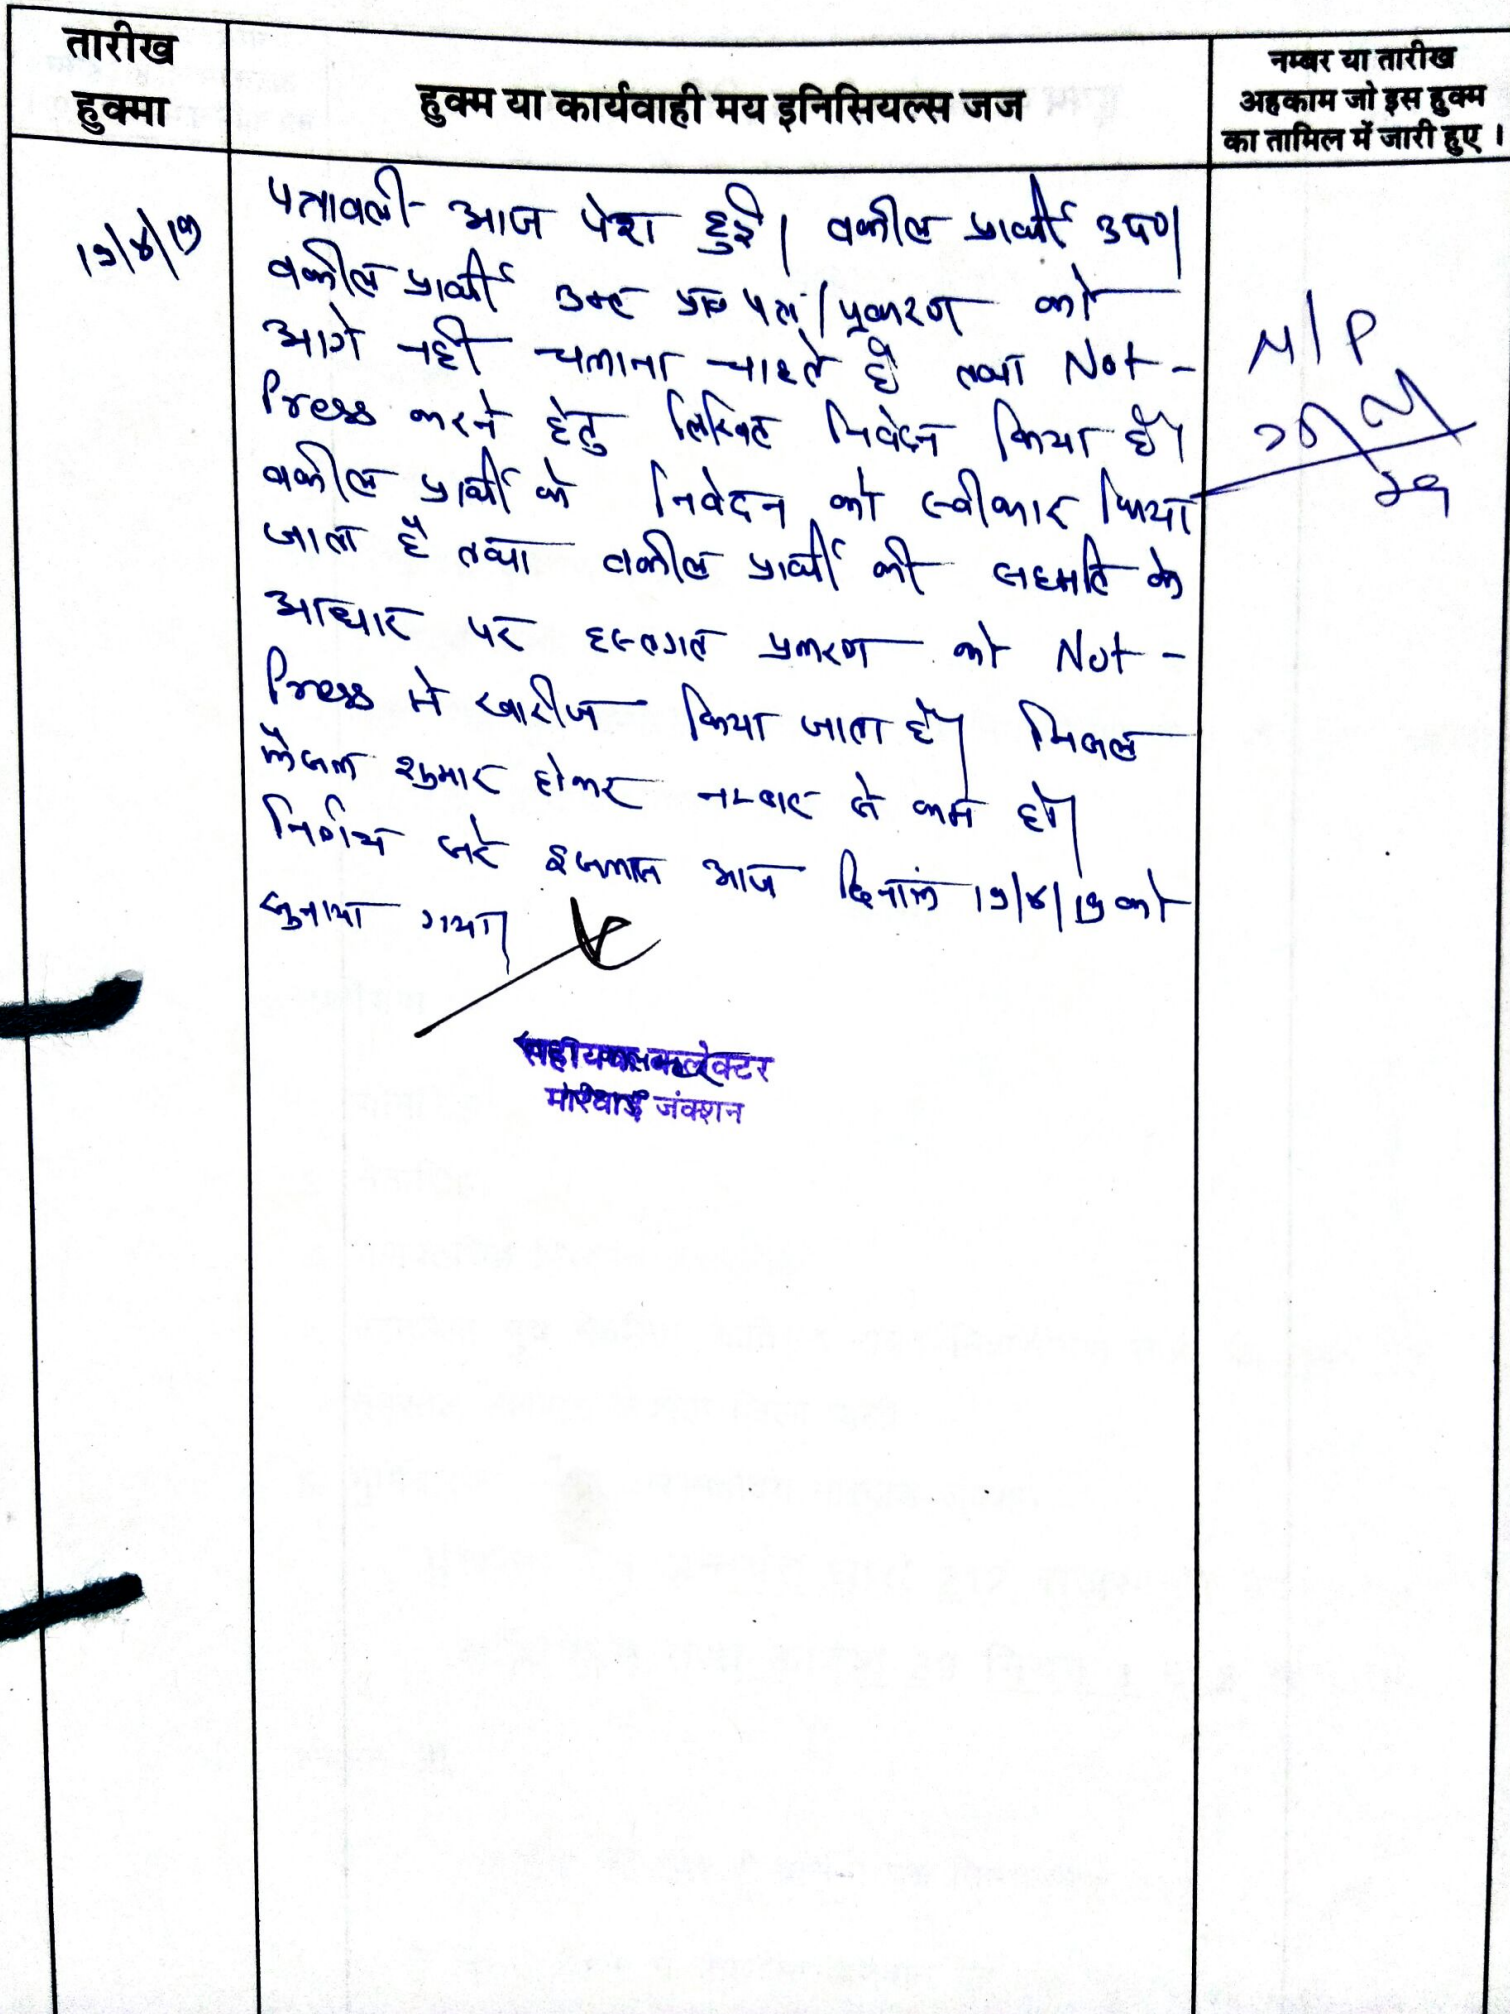 तारीख
हुक्मा
हुक्म या कार्यवाही मय इनिसियल्स जज
नम्बर या तारीख
अहकाम जो इस हुक्म
का तामिल में जारी हुए ।
पत्रावली आज पेश हुई। वकील प्रार्थी उप०
वकील प्रार्थी उक्त पत्र/प्रकरण को
आगे नही चलाना चाहते है तथा Not-
Press करने हेतु लिखित निवेदन किया है।
वकील प्रार्थी के निवेदन को स्वीकार किया
जाता है तथा वकील प्रार्थी की सहमति के
आधार पर हस्तगत प्रकरण को Not-
Press मे खारीज किया जाता है। मिसल
फैसल शुमार होकर नम्बर से कम हो।
निर्णय सरे इजलास आज दिनांक को
सुनाया गया।
N/P
सहायक कलेक्टर
मारवाड़ जंक्शन